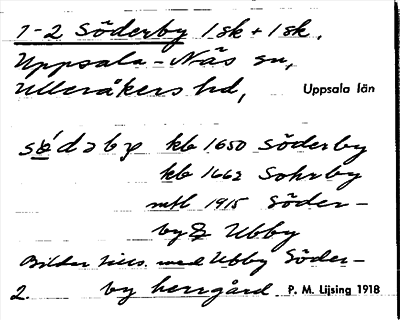 1-2 Söderby 1 sk + 1 sk,
Uppsala-Näs sn,
Ulleråkers hd,
Uppsala län
kb 1650 Söderby
kb 1662 Sohrby
mtl 1915 Söder-
by & Ubby
Bildar tills. med Ubby Söder-
2. by herrgård P. M. Lijsing 1918